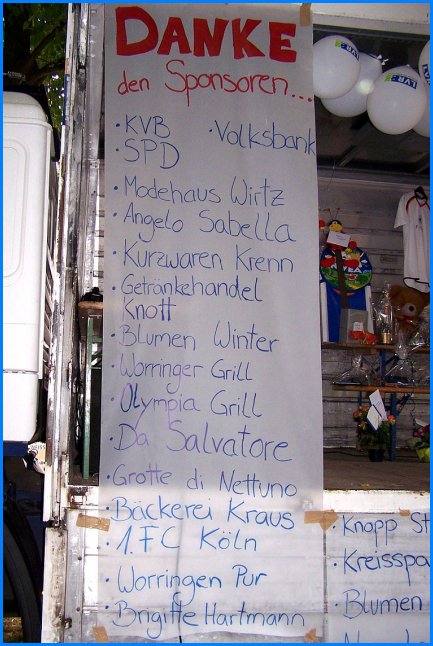 DANKE
den Sponsoren...
· KVB · Volksbank
· SPD
· Modehaus Wirtz
· Angelo Sabella
· Kurzwaren Krenn
· Getränkehandel
Knott
· Blumen Winter
· Worringer Grill
· Olympia Grill
· Da Salvatore
· Grotte di Nettuno
· Bäckerei Kraus
· 1. FC Köln
· Worringen Pur
· Brigitte Hartmann
· Knopp
· Blumen
LVR